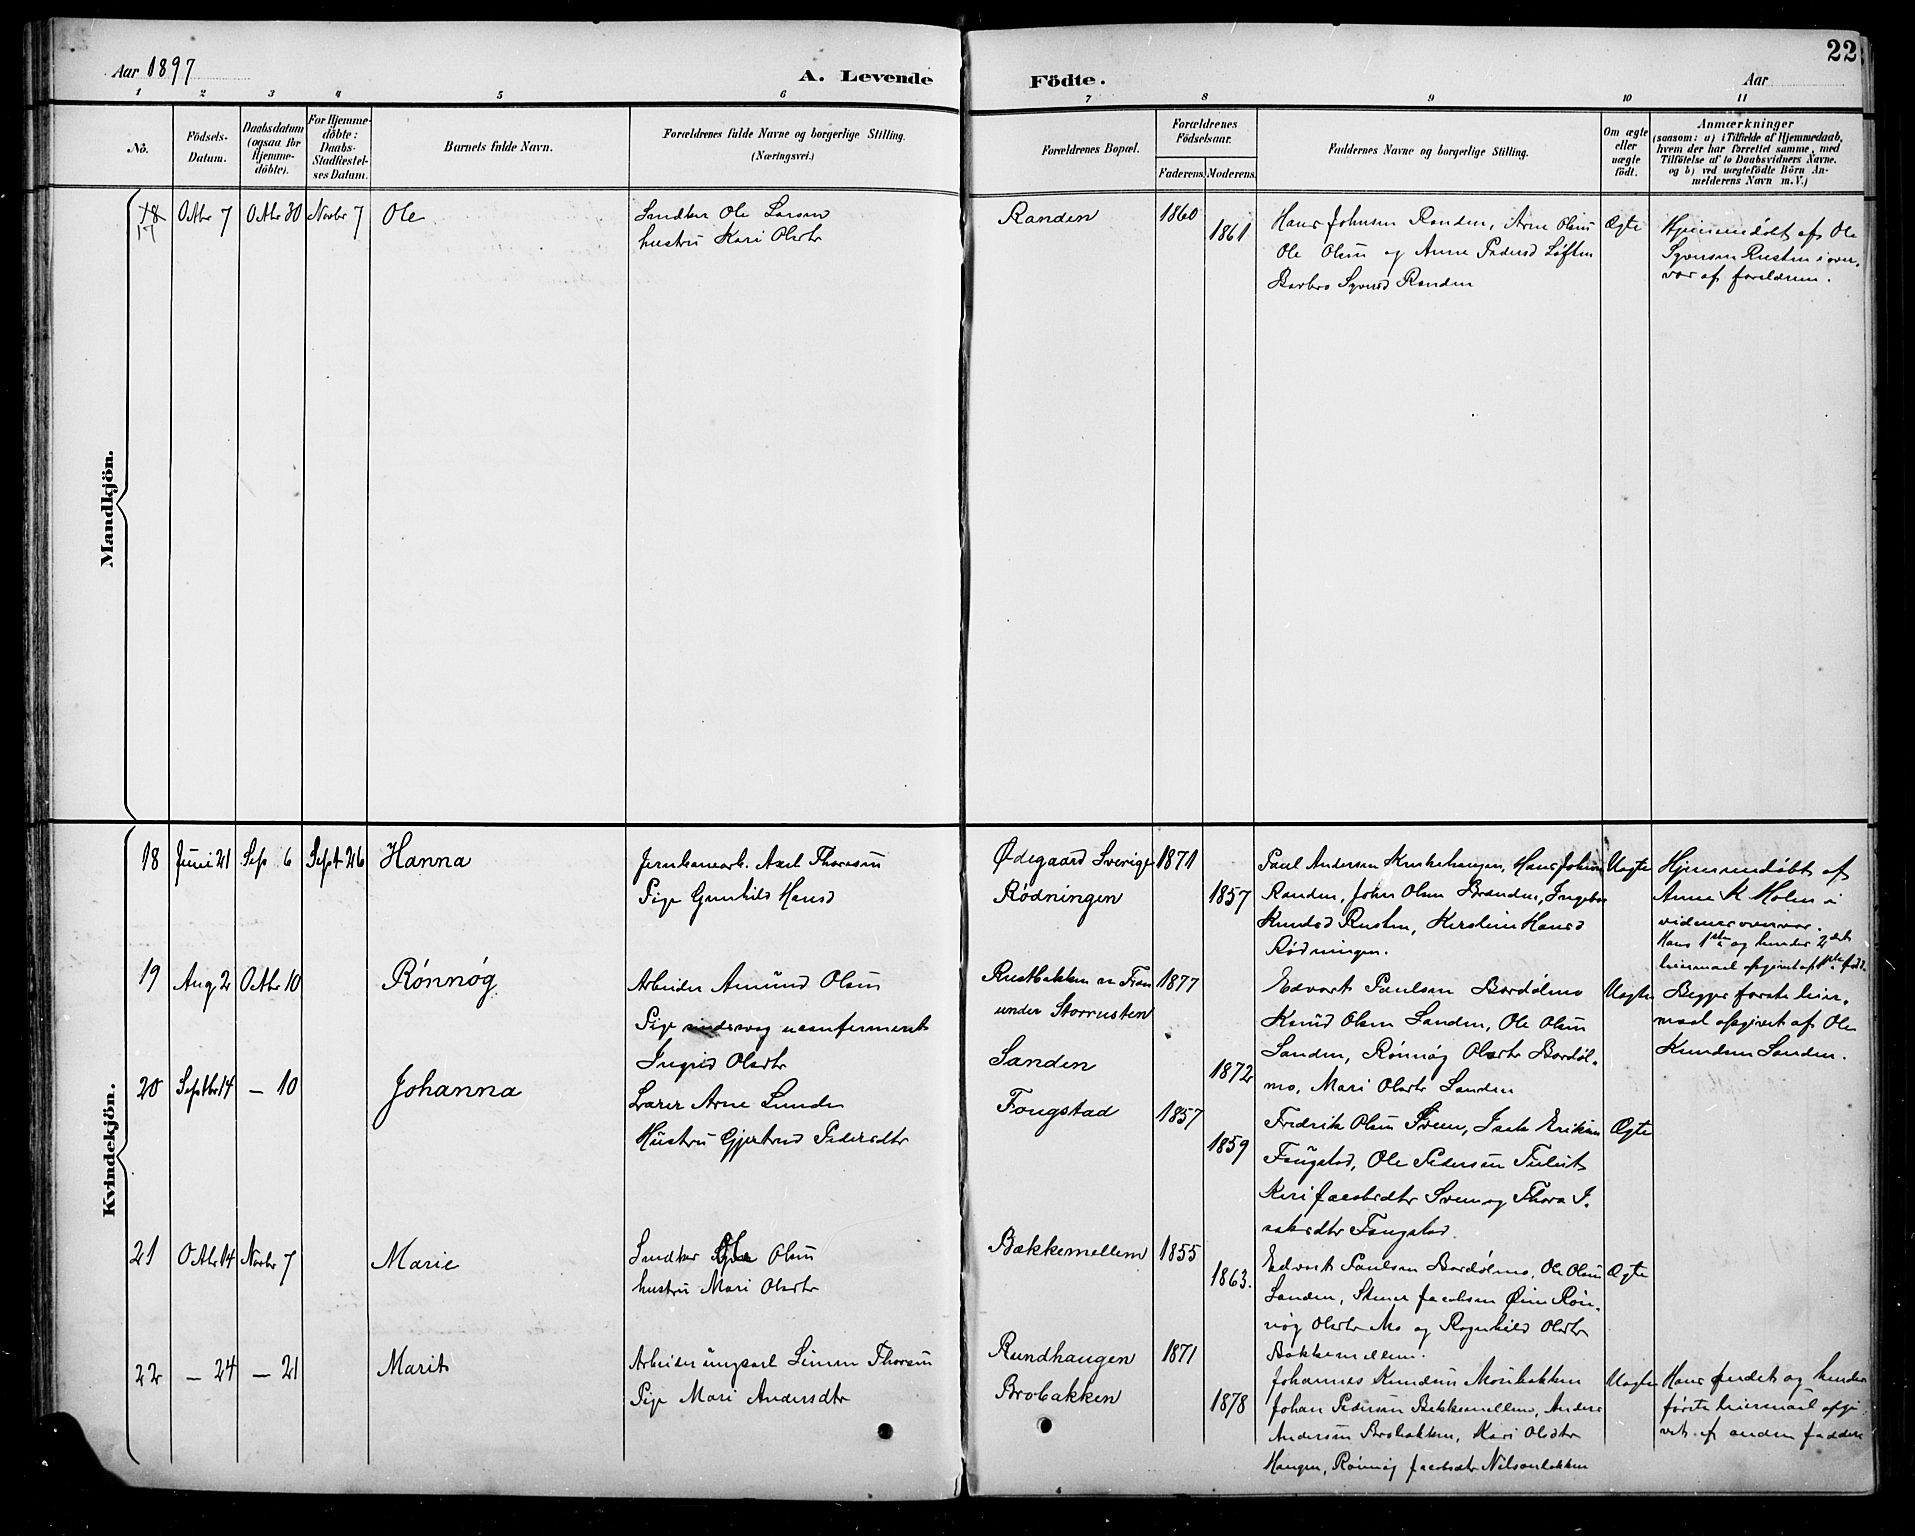 22
Aar 1897
A. Levende
Födte.
Aar
1 2 3 4 5 6 7 8 9 10 11
No.
Födsels-
Datum.
Daabsdatum
(ogsaa for
Hjemme-
döbte).
For Hjemme-
döbte:
Daabs-
Stadfæstel-
ses Datum.
Barnets fulde Navn.
Forældrenes fulde Navne og borgerlige Stilling.
(Næringsvei.)
Forældrenes Bopæl.
Forældrenes
Födselsaar.
Faderens.
Moderens.
Faddernes Navne og borgerlige Stilling.
Om ægte
eller
uægte
födt.
Anmærkninger
(saasom: a) i Tilfælde af Hjemmedaab,
hvem der har forrettet samme, med
Tilföielse af to Daabsvidners Navne.
og b) ved uægtefödte Börn An-
melderens Navn m. V.)
Mandkjön.
18
17
Octbr 7
Octbr 30
Novbr 7
Ole
Smedker Ole Larsen
hustru Kari Olsdtr
Randen
1860
1861
Hans Johnsen Randen, Arne Olsen
Ole Olsen og Anne Pedersd Løften
Barbro Syversd Randen
Ægte
Hjemmedøbt af Ole
Syversen Rusten i over-
vær af forældrene.
Kvindekjön.
18
Juni 21
Sep 6
Sept 26
Hanna
Jernbanearb. Axel Thoresen
Pige Gunhild Hansd
Ødegaard Sverige
Rødningen
1871
1857
Paul Andersen Kirkehaugen, Hans Johnsen
Randen, John Olsen Branden, Ingebor
Knudsd Rusten, Kerstine Hansd
Rødningen.
Uægte
Hjemmedøbt af
Anne K Holen i
vidners overvær.
Hans 1ste og hendes 2det
leiermaal opgivet af 1ste fadd.
19
Aug 2
Octbr 10
Rønnøg
Arbeider Amund Olsen
Pige uconfirmeret
Ingrid Olsdtr
Rustbakken
under Storrusten
Sanden
1877
1872
Edvart Paulsen Bordølmo
Knud Olsen Sanden, Ole Olsen
Sanden, Rønnøg Olsdtr Bordøl-
mo, Mari Olsdtr Sanden
Uægte
Begges første leier-
maal opgivet af Ole
Knudsen Sanden.
20
Septbr 14
— 10
Johanna
Lærer Arne Lunde
Hustru Gjertrud Pedersdtr
Fougstad
1857
1859
Fredrik Olsen Sveen, Isak Eriksen
Fougstad, Ole Pedersen
Kari Jacobsdtr Sveen og Thora I-
saksdtr Fougstad.
Ægte
21
Octbr 14
Novbr 7
Marie
Smedker Ole Olsen
hustru Mari Olsdtr
Bækkemellem
1855
1863.
Edvart Paulsen Bordølmo, Ole Olsen
Sanden, Stener Jacobsen Øien Røn-
nøg Olsdtr Mo og Ragnhild Olsdtr
Bækkemellem.
Ægte
22
— 24
— 21
Marit
Arbeider ungkarl Simen Thoresen
Pige Mari Andersdtr
Rundhaugen
Brobakken
1871
1878
Johannes Knudsen Moubakken
Johan Pedersen Bekkemellem, Anders
Andersen Brobakken, Kari Olsdtr
Haugen, Rønnøg Jacobsdtr Nilsonbakken
Uægte
Hans andet og hendes
første leiermaal opgi-
vet af anden fadder